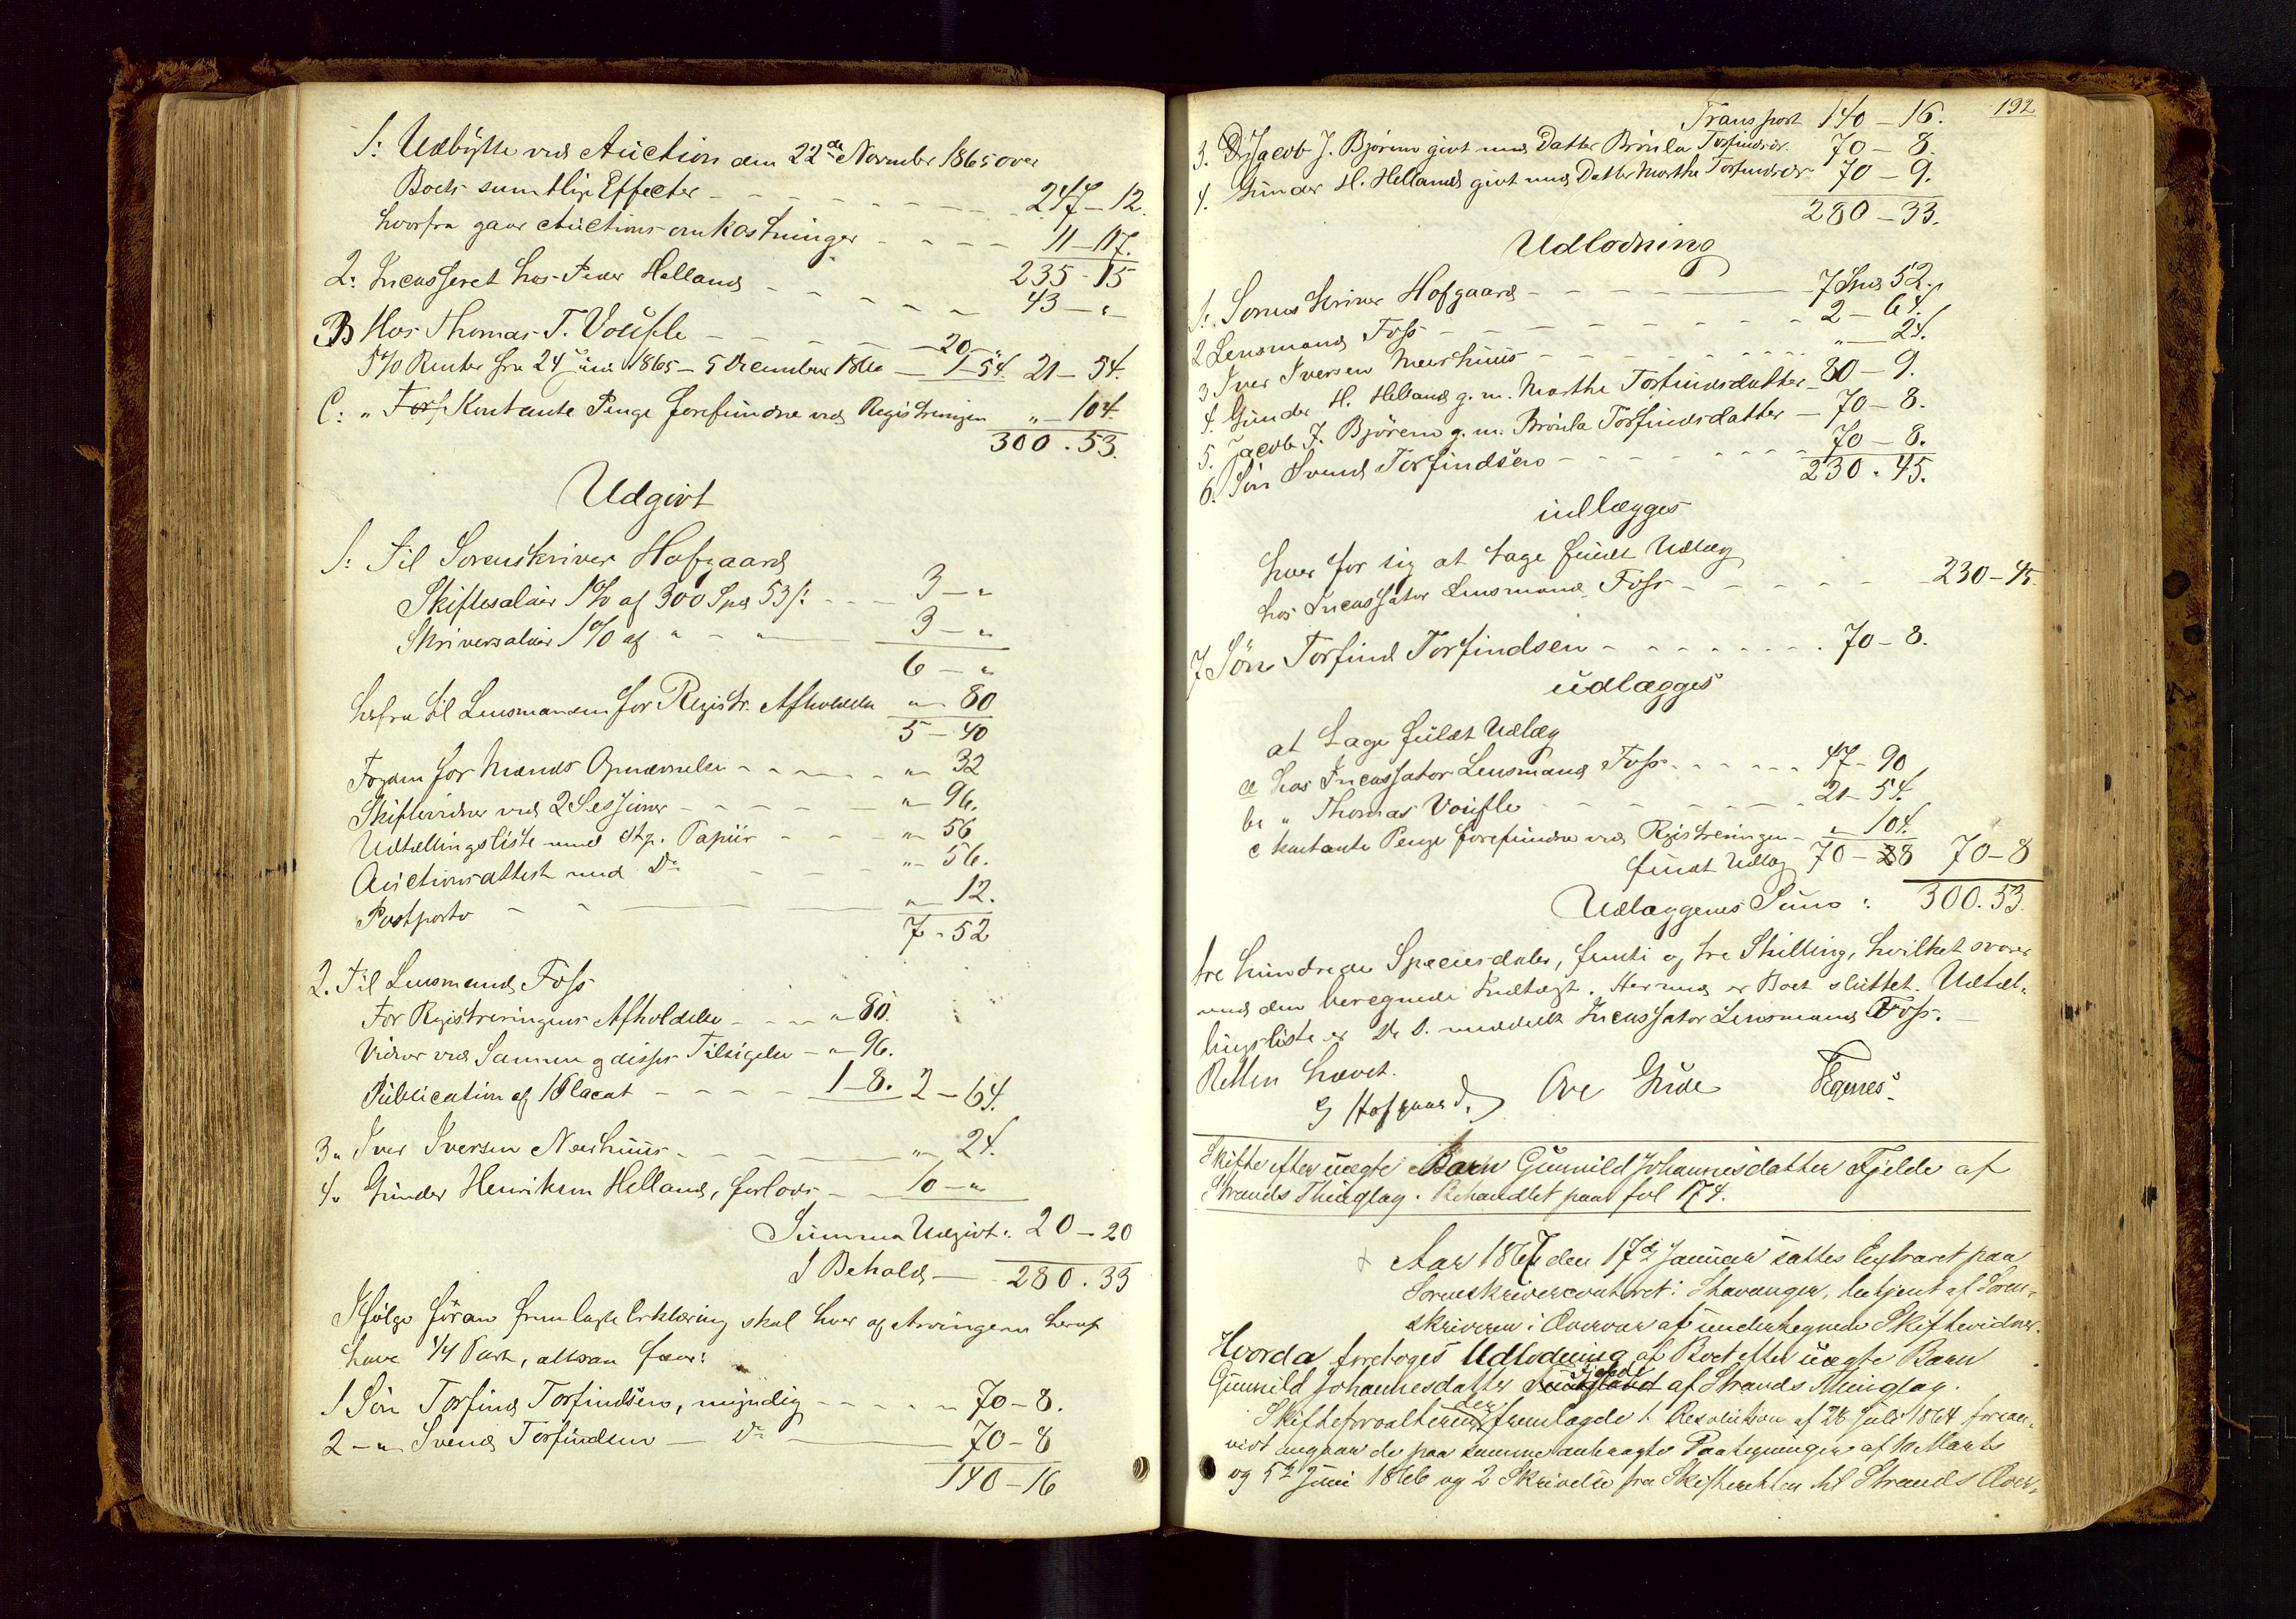 1: Udbytte ved Auction den 22de November 1865 over
Boets samtlige Effecter - - - 247 - 12.
hvorfra gaar Auctionsomkostninger - - - 11 - 117.
235 - 15
2: Incasseret hos Peder Helland - - - 43 - "
B Hos Thomas T. Voufle - - - 20 - "
5 % Renter fra 24 Juni 1865 - 5 December 1866 - 1 - 54. 21 - 54.
C: " Contante Penge forefundne ved Registreringen " - 104
300 . 53.
Udgivt
1: Til Sorenskriver Hofgaard
Skiftesalair 1 % af 300 Spd 53 s: - - - 3 - "
Skriversalair 1 % af " - " - 3 - "
6 - "
hvfra til Lensmanden for Registr. Afholdelse " - 80
5 - 40
Fogden for Mænds Opnævnelse - - - " - 32
Skiftevidner ved 2 Sessioner - - - " - 96.
Udtællingsliste med stp. Papiir - - - " - 56
Auctionsattest med Do - - - " - 56.
Postporto - - - " - 12.
7 - 52
2. Til Lensmand Foss
For Registreringens Afholdelse - - - " - 80.
Vidner ved Samme og disses Tilsigelse - " - 96.
Publication af 1 Placat - - - 1 - 8. 2 - 64.
3 " Iver Iversen Neerhuus - - - " - 24.
4 " Gunder Henriksen Helland, forlods - - 10 - "
Summa Udgivt: 20 - 20
I Behold - 280 . 33
Ifølge foran fremlagte Erklæring skal hver af Arvingerne heraf
have 1/4 Part, altsaa faar:
1 Søn Torfind Torfindsen, myndig - - - 70 - 8.
2 - " Svend Torfindsen - Do - 70 - 8
140 - 16
192
Transport 140 - 16.
3. Jacob J. Bjørem givt med Datter Brønla Torfindsdr. 70 - 8.
4. Gunder H. Helland givt med Datter Marthe Torfindsdr 70 - 9.
280 - 33.
Udlodning
1: Sorenskriver Hofgaard - - - 7 Spd 52.
2 Lensmand Foss - - - 2 - 64.
3 Iver Iversen Neerhuus - - - " - 24.
4. Gunder H. Helland g. m. Marthe Torfindsdatter - 80 - 9.
5. Jacob J. Bjørem g. m. Brønla Torfindsdatter - 70 - 8.
6. Søn Svend Torfindsen - - - 70 - 8.
230 . 45.
udlægges
hver for sig at tage fuldt Udlæg
hos Incassator Lensmand Foss - - - 230 - 45.
7 Søn Torfind Torfindsen - - - 70 - 8.
udlægges
at tage fuldt Udlæg
a hos Incassator Lensmand Foss - - - 47 - 90
b " Thomas Voufle - - - 21 - 54.
c kontante Penge forefundne ved Registreringen - " 104.
fuldt Udlæg 70 - 8 70 - 8
Udlæggenes Sum: 300 . 53.
tre hundrede Speciesdaler, femti og tre Skilling, hvilket svarer
med den beregnede Indtægt. Hermed er Boet sluttet. Udtæl-
lingsliste er D. D. meddelt Incassator Lensmand Foss. -
Retten hævet.
G Hofgaard. Ove Gude Tegnes.
Skifte efter uægte Barn Gunnild Johannesdatter Fjelde af
Strands Thinglag. Behandlet paa fol 174.
Aar 1867 den 17de Januar sattes Extraret paa
Sorenskrivercontoret i Stavanger, betjent af Soren-
skriveren i Overvær af undertegnede Skiftevidner.
Hvorda foretoges Udlodning af Boet efter uægte Barn
Gunnild Johannesdatter Fjelde af Strands Thinglag.
Skifteforvalteren fremlagde 1. Resolution af 28 Juli 1864
og 5te Juni 1866 og 2 Skrivelse fra Skifteretten til Strands Over-